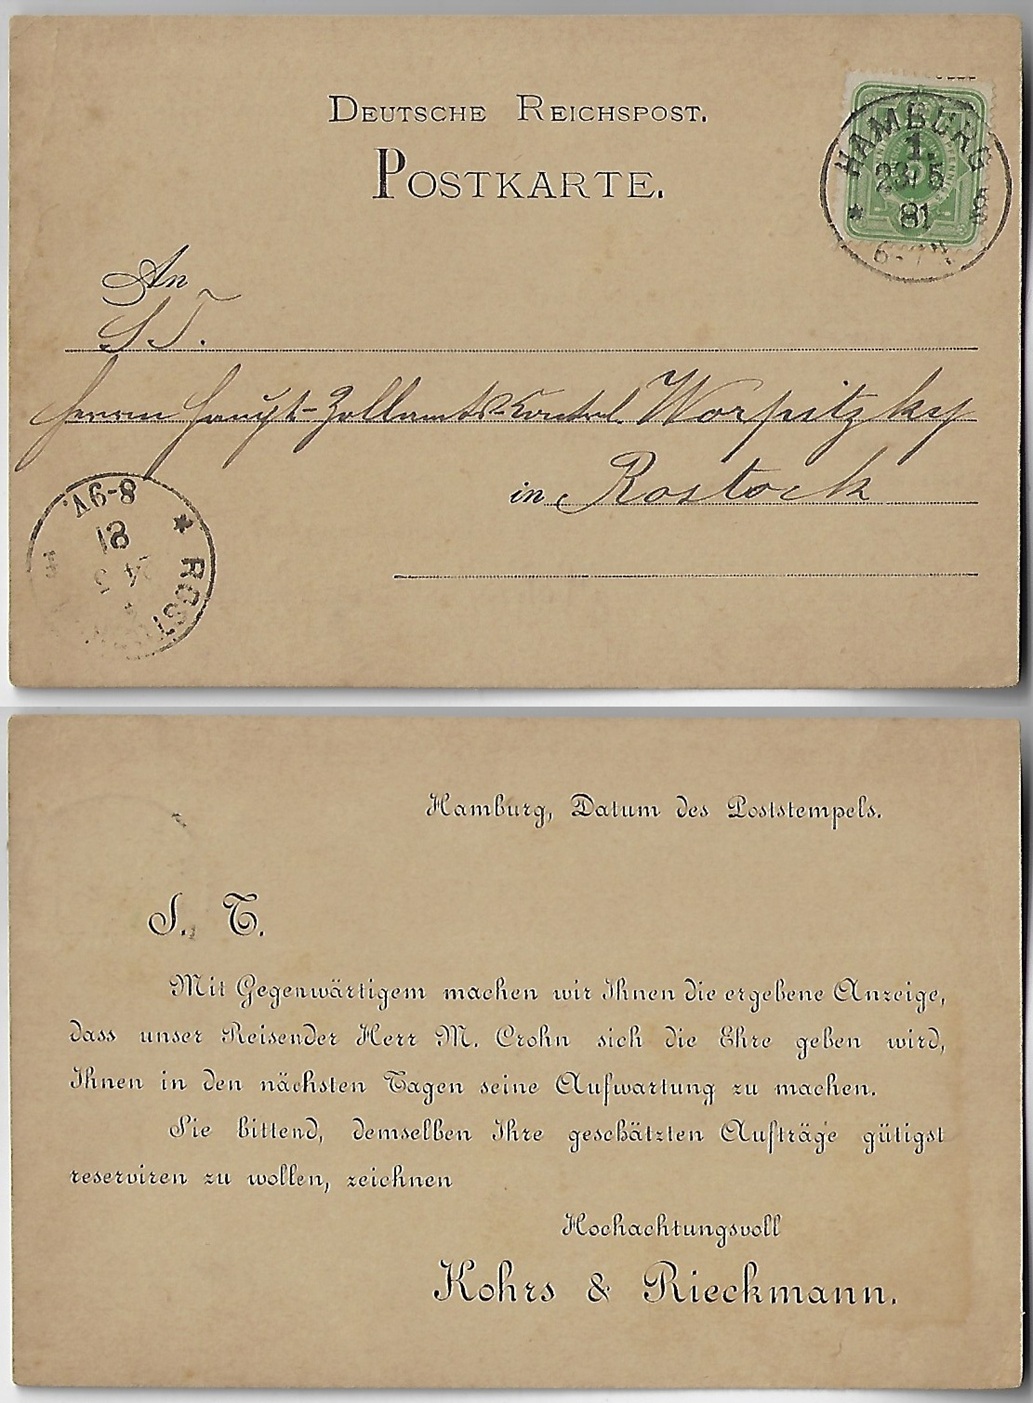 DEUTSCHE REICHSPOST.
POSTKARTE.
HAMBURG
1.
23/5
81
6-7N.
An
S T.
Herrn Haupt-Zollamts-Control. Worpitzky
in Rostock
ROST
81
8-9V.
Hamburg, Datum des Poststempels.
S. T.
Mit Gegenwärtigem machen wir Ihnen die ergebene Anzeige,
dass unser Reisender Herr M. Crohn sich die Ehre geben wird,
Ihnen in den nächsten Tagen seine Aufwartung zu machen.
Sie bittend, demselben Ihre geschätzten Aufträge gütigst
reserviren zu wollen, zeichnen
Hochachtungsvoll
Kohrs & Rieckmann.